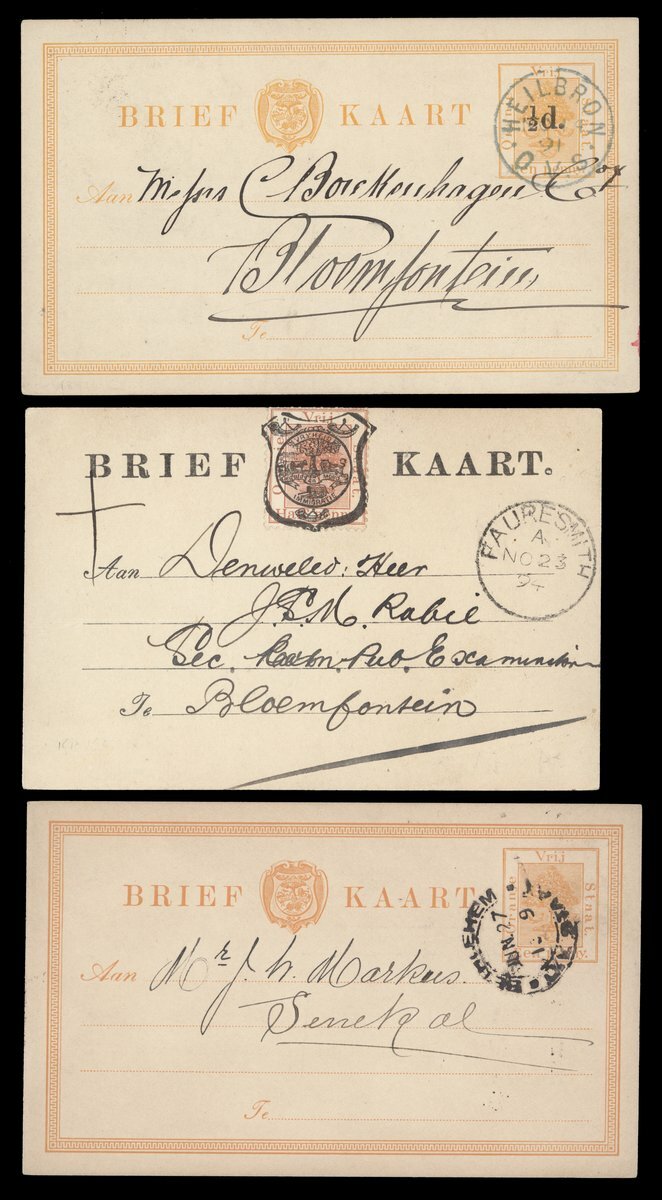 BRIEF KAART
Vrij
½d.
HEILBRON
91
O.V.S.
Aan Messrs C Borckenhagen & Co
Bloemfontein
Te
BRIEF KAART.
Vrij
IMMIGRATIE
FAURESMITH
A
NO 23
94
Aan Denweled: Heer
J.P.M. Rabie
Sec. Pub. Examination
Te Bloemfontein
BRIEF KAART
Vrij
Oranje Staat
BETHLEHEM
JUN 27
Aan Mr J. W. Markus.
Senekal
Te